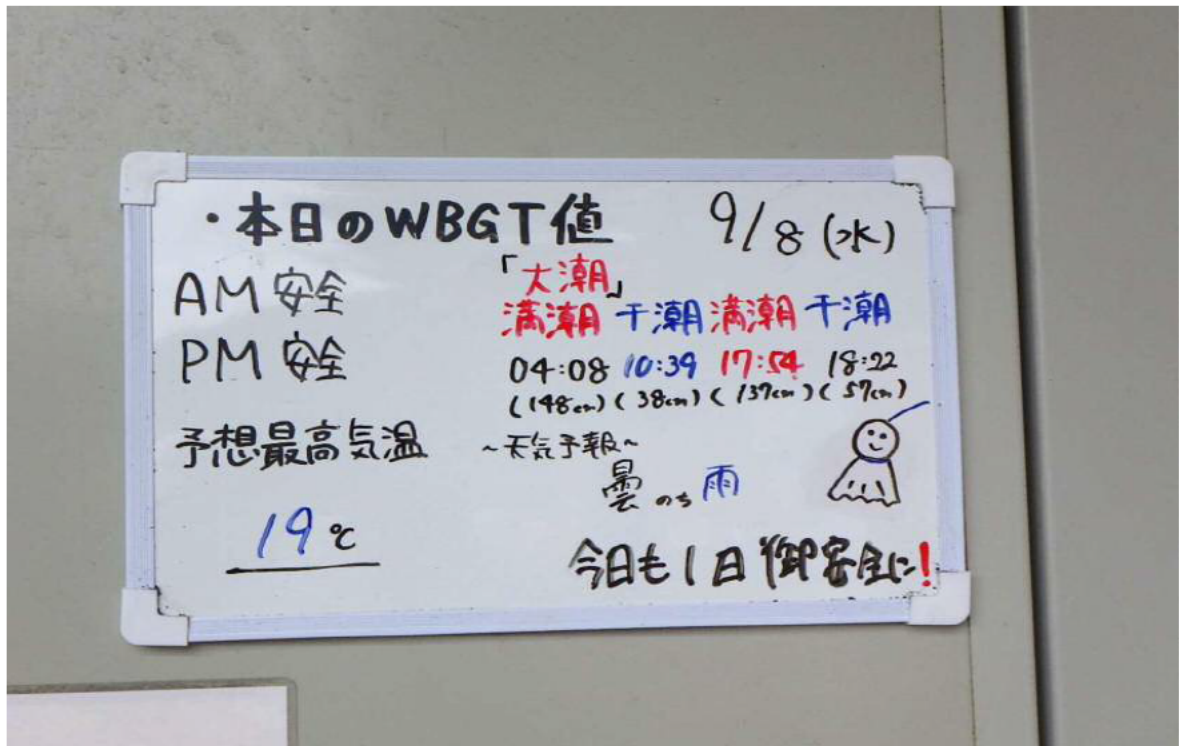 ・本日のWBGT値 9/8(水)
AM 安全
PM 安全
予想最高気温
19℃
「大潮」
満潮 干潮 満潮 干潮
04:08 10:39 17:54 18:22
(148cm)(38cm)(137cm)(57cm)
~天気予報~
曇のち雨
今日も1日御安全に!